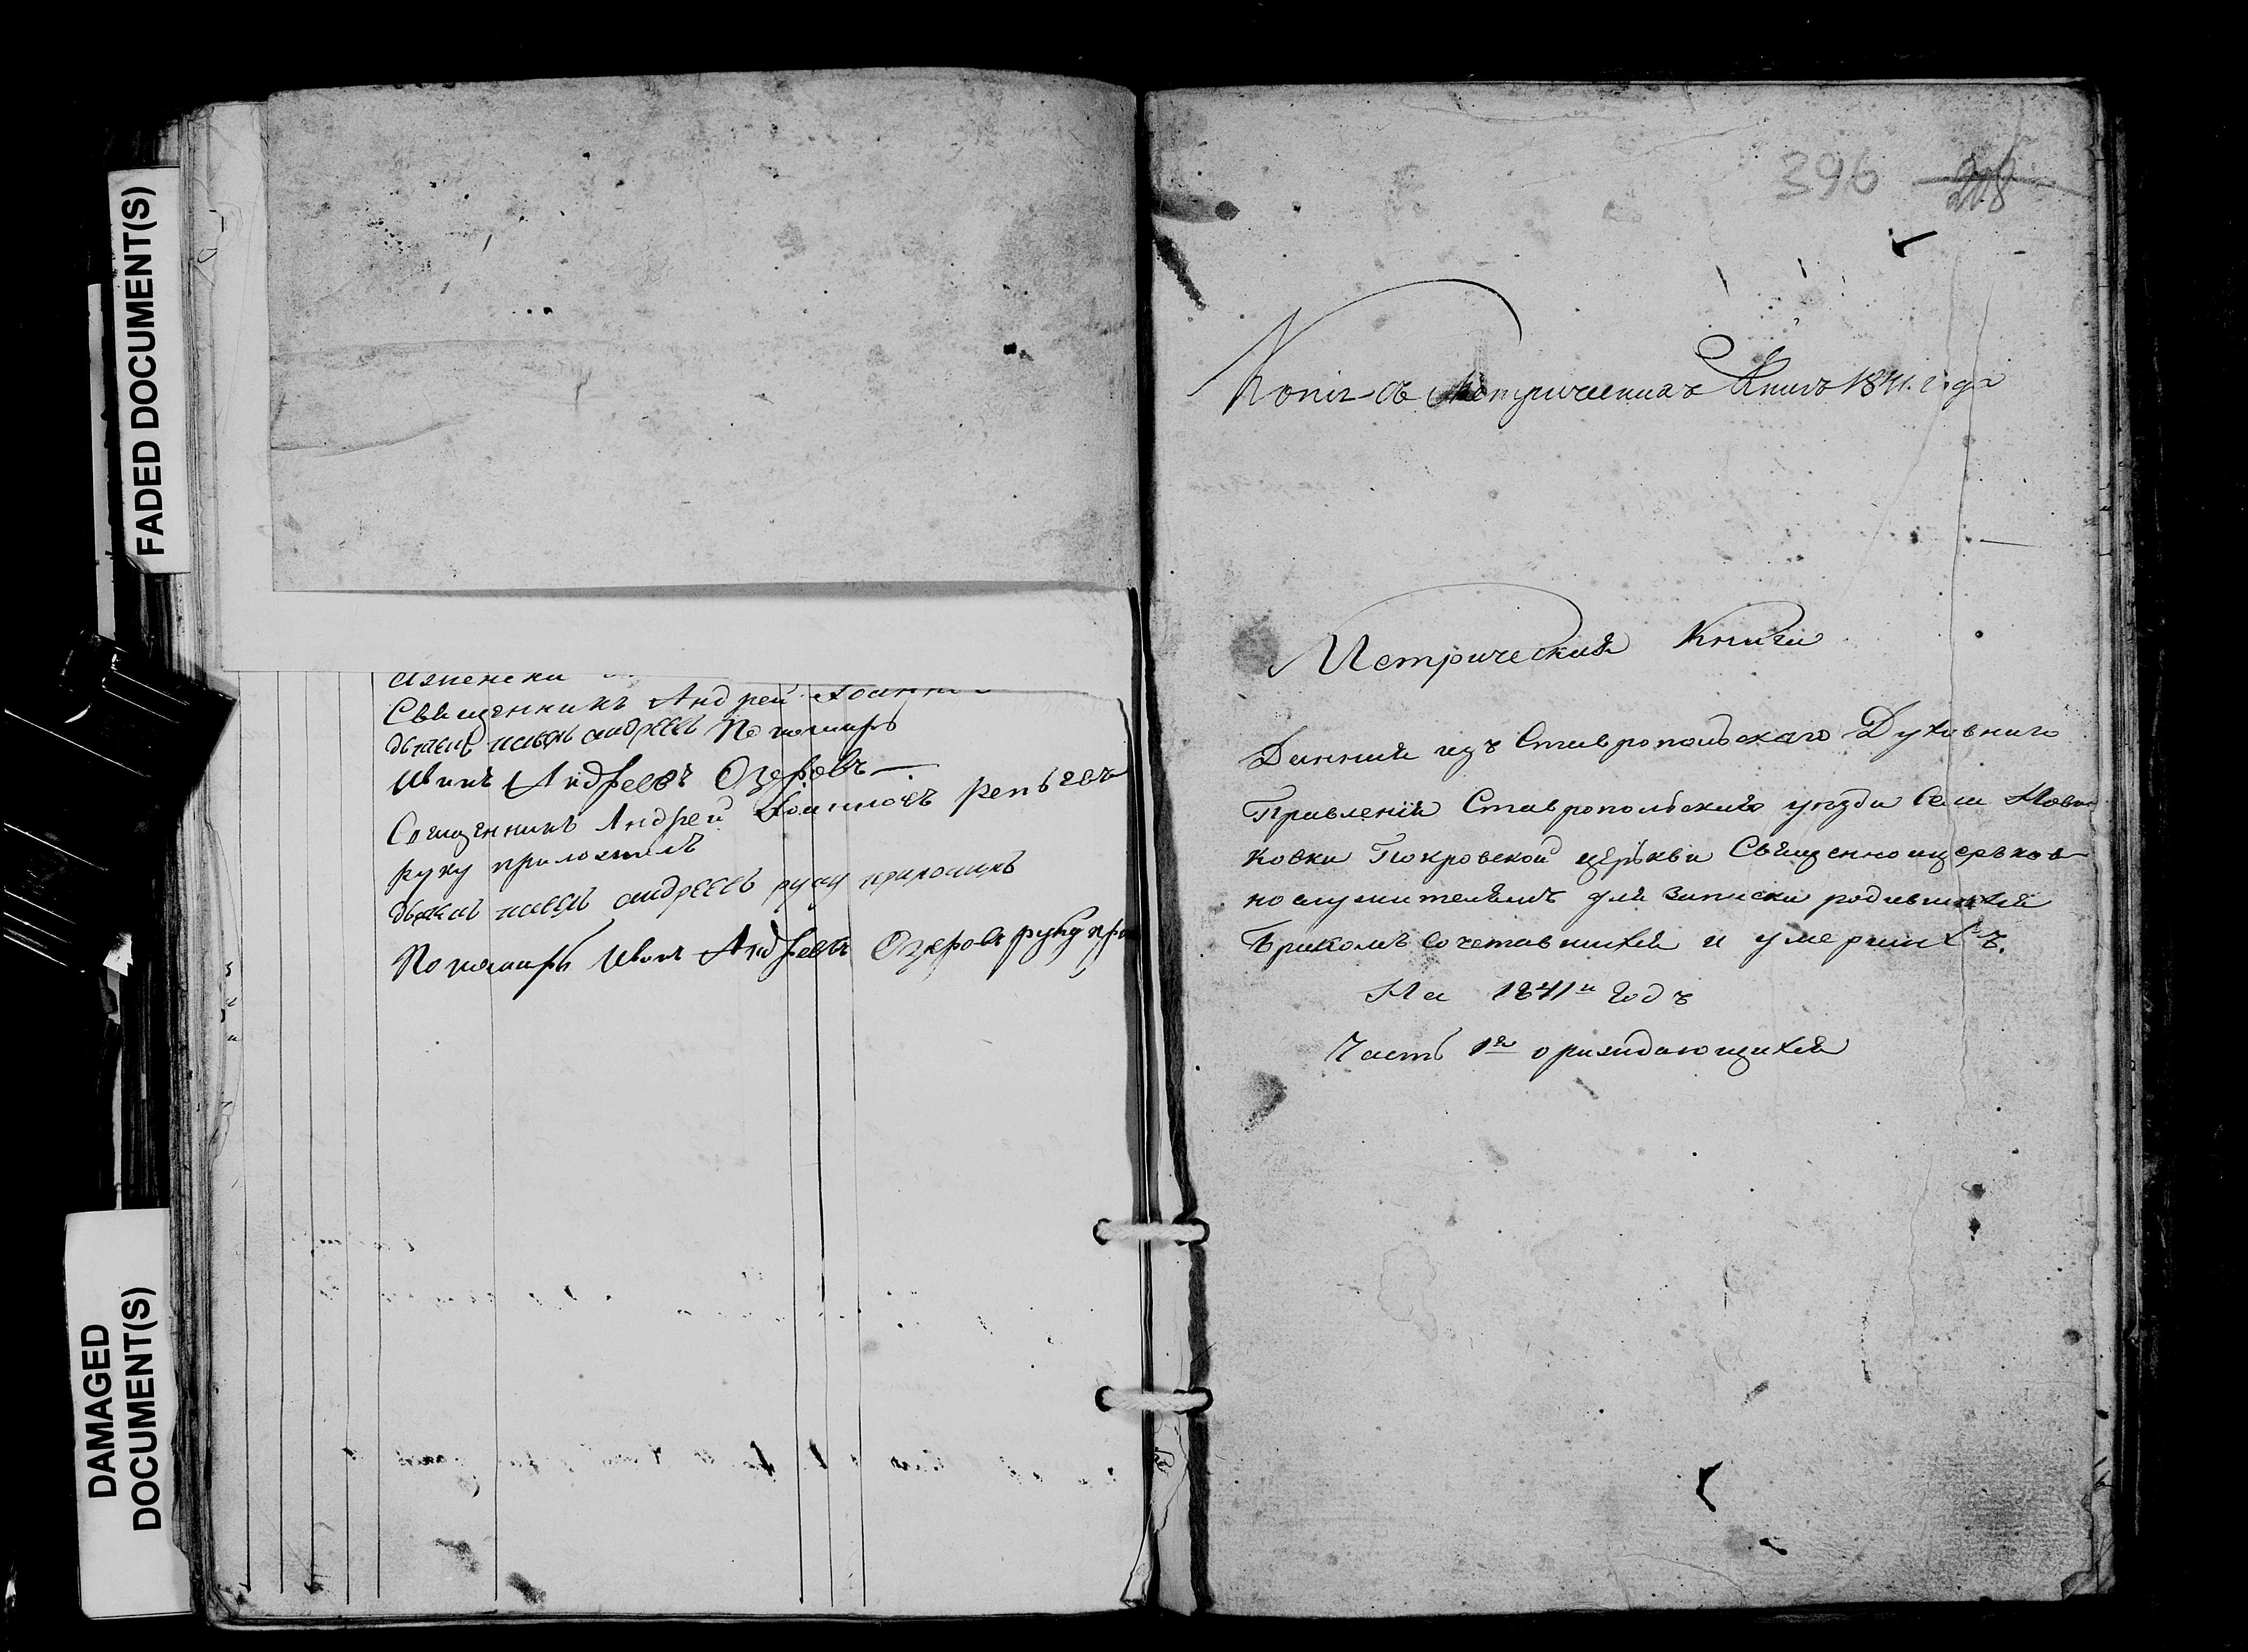 FADED DOCUMENT(S)
DAMAGED
DOCUMENT(S)
Священникъ Андрей
дьякъ андреевъ Пономарь
Иванъ Андреевъ Озеровъ
Священникъ Андрей Іоанновъ репьевъ
руку приложилъ
дьякъ андреевъ руку приложилъ
Пономарь Иванъ Андреевъ Озеровъ руку при
396 208
Копія съ Метрическихъ Книгъ 1841. года
Метрическия Книги
Данния изъ Ставропольскаго Духовнаго
Правления Ставропольскаго уезда Села Нов
ковки Покровской церькви Священноцерьков
нослужителямъ для записки родившихся
бракомъ сочетавшихся и умершихъ.
На 1841й годъ
Часть 1я о раждающихся